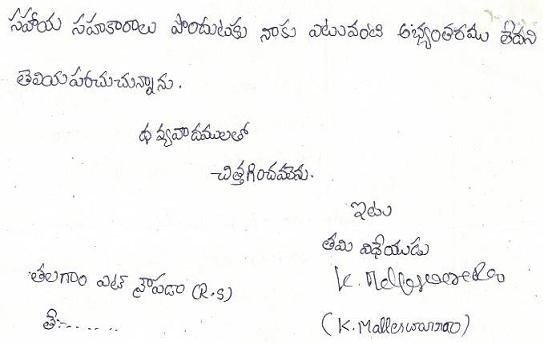 సహాయ సహకారాలు పొందుటకు నాకు ఎటువంటి అభ్యంతరము లేదని
తెలియపరచుచున్నాను.
ధన్యవాదములతో
చిత్తగించవలెను.
ఇటు
తమ విధేయుడు
తలగాం ఎట్ నౌపడా (R.S)
K. Malleswararao
తే:......
(K. Malleswararao)